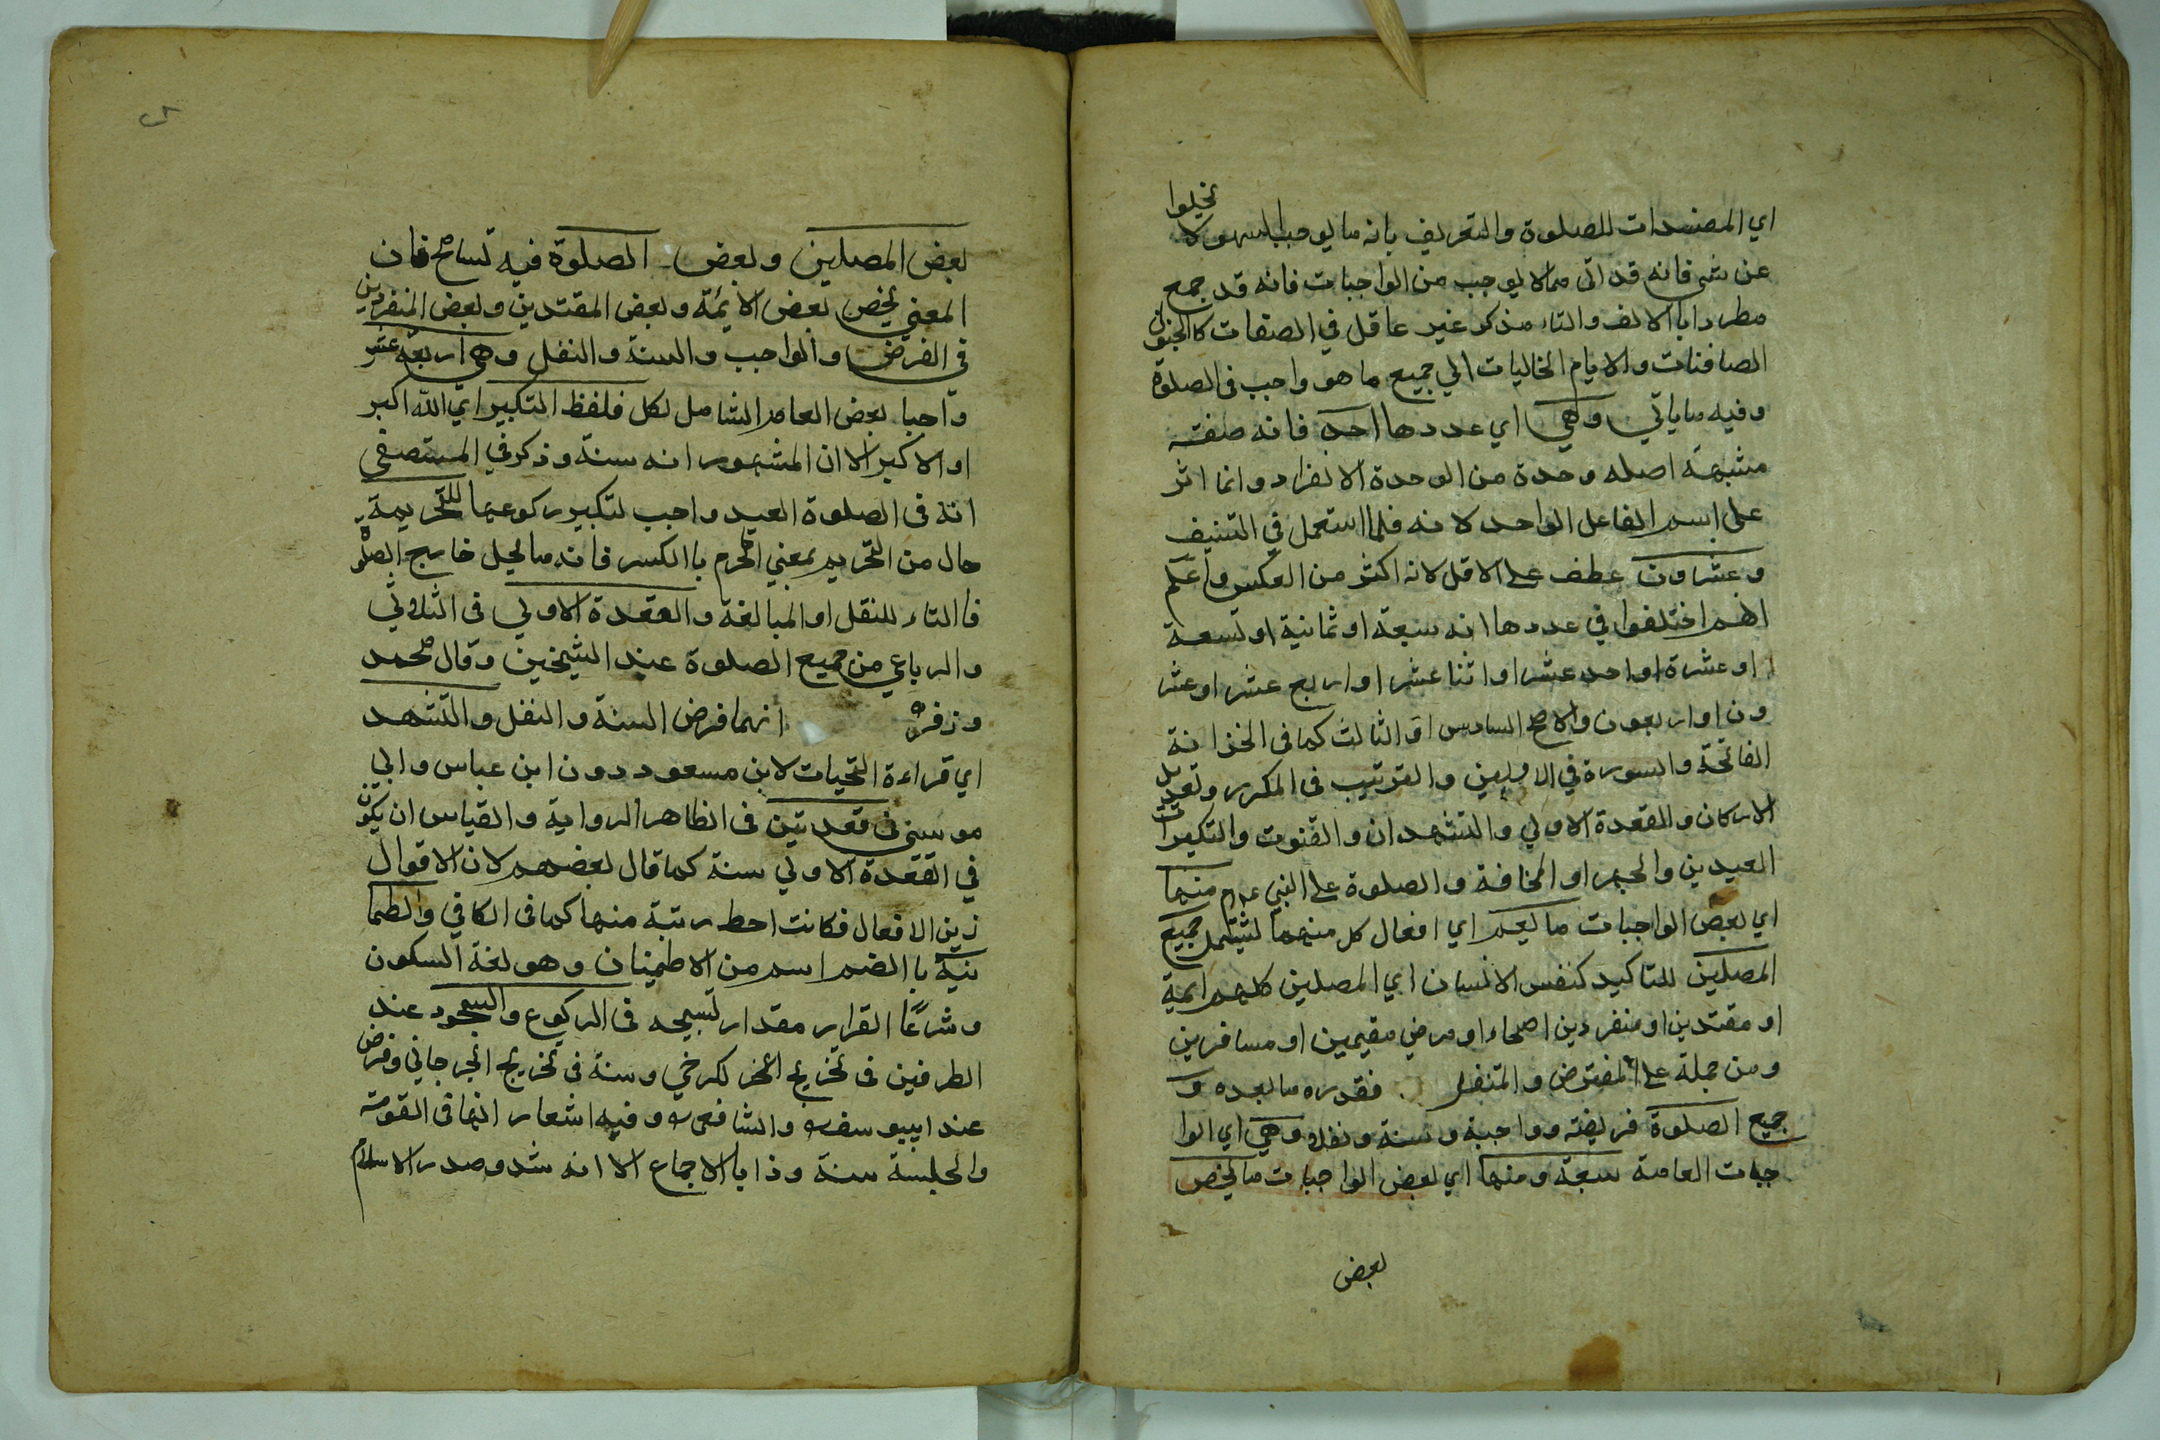 اي المفسدات للصلوة والتعريف بانه ما يوجب السهو لا يخلوا
عن شي فانه قد اتى مما لا يوجب من الواجبات فانه قد جمع
مطردا باالالف والتاء مذكر غير عاقل في الصفات كالجنون
الصافنات والايام الخاليات الي جميع ما هو واجب فى الصلوة
وفيه ما ياتي وهي اي عددها احد فانه صفة
مشبهة اصله وحدة من الوحدة الانفراد وانما اثر
على اسم الفاعل الواحد لانه فلما استعمل في التنيف
وعشرون عطف على الاقل لانه اكثر من العكس واعلم
انهم اختلفوا في عددها انه سبعة او ثمانية او تسعة
او عشرة او احد عشر او اثنا عشر او اربع عشر او عشر
ون او اربعون والاصح السادس او الثالث كما فى الخزانة
الفاتحة والسورة في الاوليين والترتيب فى المكرر وتعديل
الاركان والقعدة الاولي والتشهدان والقنوت والتكبيرات
العيدين والجهر او المخافة والصلوة على النبي عم منها
اي بعض الواجبات ما يعم اي افعال كل منهما ليشتمل جميع
المصلين للتاكيد كنفس الانسان اي المصلين كلهم ايمة
او مقتدين او منفردين اصحاء او مرضي مقيمين او مسافرين
ومن جملة على المفترض والمتنفل فقدره ما بعده و
جميع الصلوة فريضة وواجبة وسنة ونفل وهي اي الوا
جبات العامة سبعة ومنها اي بعض الواجبات ما يخص
بعض
بعض المصلين وبعض الصلوة فيه تسامح فان
المعني يخص بعض الايمة وبعض المقتدين وبعض المنفردين
فى الفرض والواجب والسنة والنفل وهي اربعة عشر
واجبا بعض العام الشامل لكل فلفظ التكبير اي الله اكبر
او الاكبر الا ان المشهور انه سنة وذكر في المستصفى
انه فى الصلوة العيد واجب لتكبير ركوعهما للتحريمة
حال من التحريم بمعني المحرم باالكسر فانه ما يحل خارج الصلوة
فاالتاء للنقل او المبالغة والقعدة الاولي فى الثلاثي
والرباعي من جميع الصلوة عند الشيخين وقال محمد
وزفر انهما فرض السنة والنفل والتشهد
اي قراءة التحيات لابن مسعود دون ابن عباس وابي
موسى فى قعدتين فى الظاهر الرواية والقياس ان يكون
في القعدة الاولي سنة كما قال بعضهم لان الاقوال
زين الافعال فكانت احط رتبة منها كما فى الكافي والطما
نينة باالضم اسم من الاطمينان وهو لغة السكون
وشرعًا القرار مقدار تسبيحه فى الركوع والسجود عند
الطرفين فى تخريج الكرخي وسنة فى تخريج الجرجاني وفرض
عند ابييوسف والشافعي وفيه اشعار انها فى القومة
والجلسة سنة وذا باالاجماع الا انه شدو صدر الاسلام